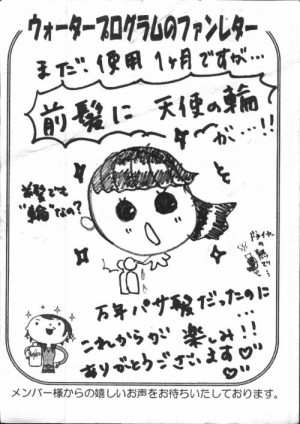 ウォータープログラムのファンレター
まだ、使用1ヶ月ですが…
前髪に 天使の輪
が…!!
前髪でも
"輪"なの?
ドライヤー
の熱で
万年パサ髪だったのに
これからが 楽しみ!!
ありがとうございます♡♡
メンバー様からの嬉しいお声をお待ちいたしております。